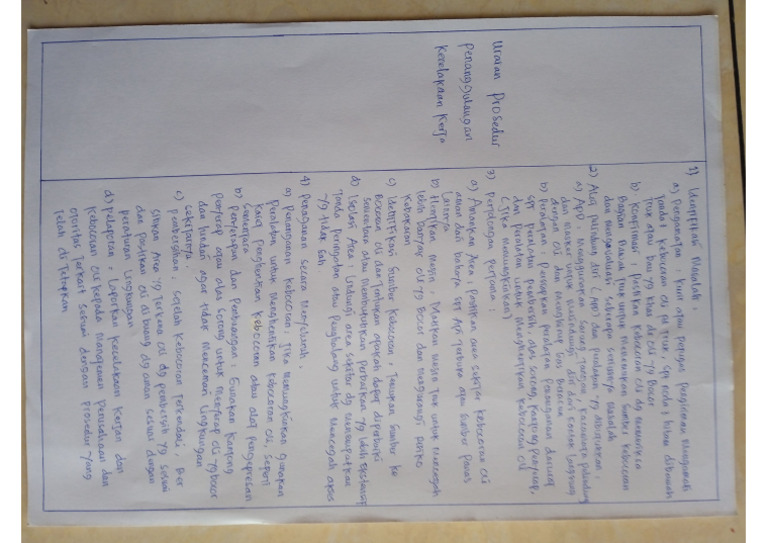 Uraian Prosedur
Penanggulangan
Kecelakaan Kerja
1) Identifikasi Masalah,
a) Pengamatan : kurir atau petugas pengiriman mengamati
tanda" kebocoran oli pd truk, spt noda" hitam dibawah
truk atau bau yg khas dr oli yg bocor
b) Konfirmasi : Pastikan kebocoran oli dg memeriksa
bagian bawah truk untuk menemukan sumber kebocoran
dan mengevaluasi seberapa seriusnya masalah
2) Alat pelindung diri (APD) dan peralatan yg dibutuhkan,
a) APD : menggunakan sarung tangan, kacamata pelindung
dan masker untuk melindungi diri dari kontak langsung
dengan oli dan menghirup uap beracun
b) peralatan : siapkan peralatan penanganan darurat
spt peralatan pembersih, alas serong, kantong penyerap,
dan peralatan untuk menghentikan kebocoran oli
(jika memungkinkan)
3) pertolongan pertama :
a) Amankan Area : pastikan area sekitar kebocoran oli
aman dari bahaya spt api terbuka atau sumber panas
lainnya
b) Hentikan mesin : Matikan mesin truk untuk mencegah
lebih banyak oli yg bocor dan mengurangi risiko
kebakaran
c) Identifikasi sumber kebocoran : Temukan sumber ke
bocoran oli dan tentukan apakah dapat diperbaiki
sementara atau membutuhkan perbaikan yg lebih ekstensif
d) Isolasi Area : Lindungi area sekitar dg menempatkan
tanda peringatan atau penghalang untuk mencegah akses
yg tidak sah
4) penanganan secara menyeluruh.
a) penanganan kebocoran : Jika memungkinkan gunakan
peralatan untuk menghentikan kebocoran oli, seperti
kain penghentian kebocoran atau alat pengepresan
sementara
b) penyerapan dan pembuangan : gunakan kantong
penyerap atau alas serong untuk menyerap oli yg bocor
dan hindari agar tidak mencemari lingkungan
sekitarnya.
c) pembersihan : setelah kebocoran terkendali, ber
sihkan area yg terkena oli dg pembersih yg sesuai
dan pastikan oli di buang dg aman sesuai dengan
peraturan lingkungan
d) pelaporan : Laporkan kecelakaan kerja dan
kebocoran oli kepada manajemen perusahaan dan
otoritas terkait sesuai dengan prosedur yang
telah di tetapkan